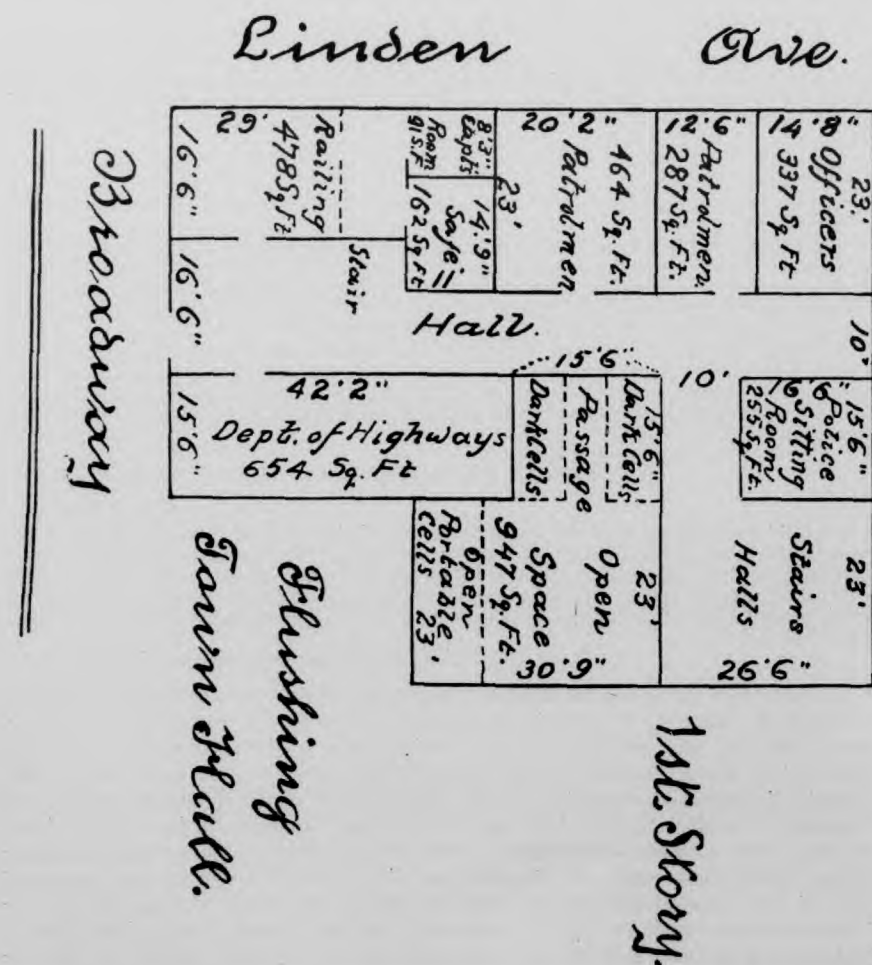 Linden Ave.
Broadway
16'6"
29'
478 Sq. Ft
Railing
8'3"
Capt's
Room
91 S.F.
14'9"
Safe
162 Sq Ft
23'
20'2"
Patrolmen
464 Sq. Ft.
12'6"
Patrolmen.
287 Sq. Ft.
14'8"
23'
Officers
337 Sq Ft
16'6"
Stair
Hall.
10'
15'6"
42'2"
Dept. of Highways
654 Sq. Ft
15'6"
Dark Cells
Passage
Dark Cells
15'6"
10'
16'6"
15'6"
Police
Sitting
Room
255 Sq. Ft.
Open
Portable
Cells 23'
Open
Space
947 Sq. Ft.
23'
30'9"
23'
Stairs
Halls
26'6"
Flushing
Town Hall.
1st. Story.